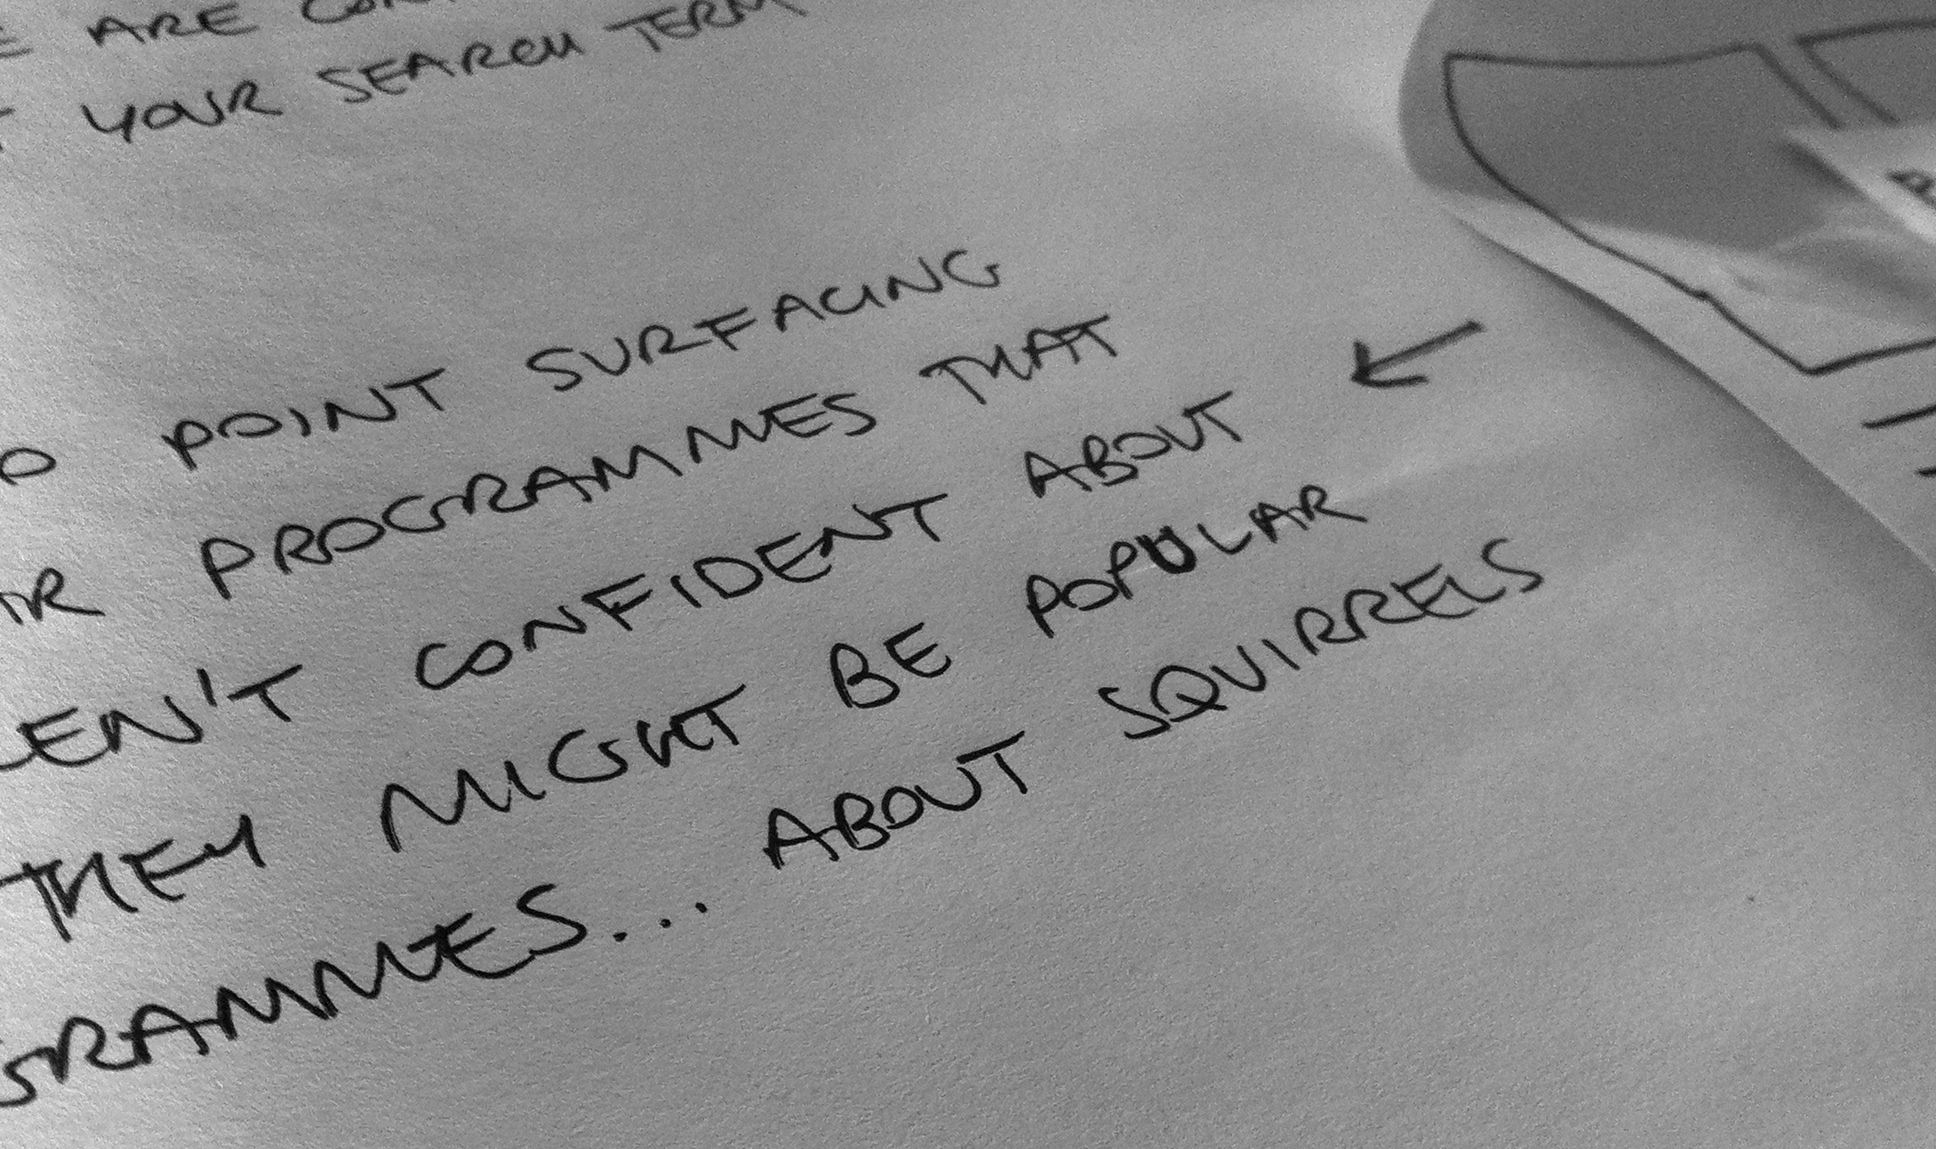 ARE
YOUR SEARCH TERM
POINT SURFACING
PROGRAMMES THAT
CONFIDENT ABOUT
THEY MIGHT BE POPULAR
... ABOUT SQUIRRELS